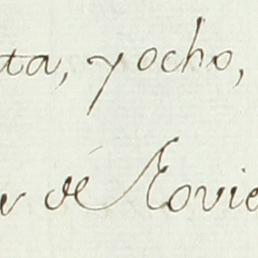 ta, y ocho,
r de Novie